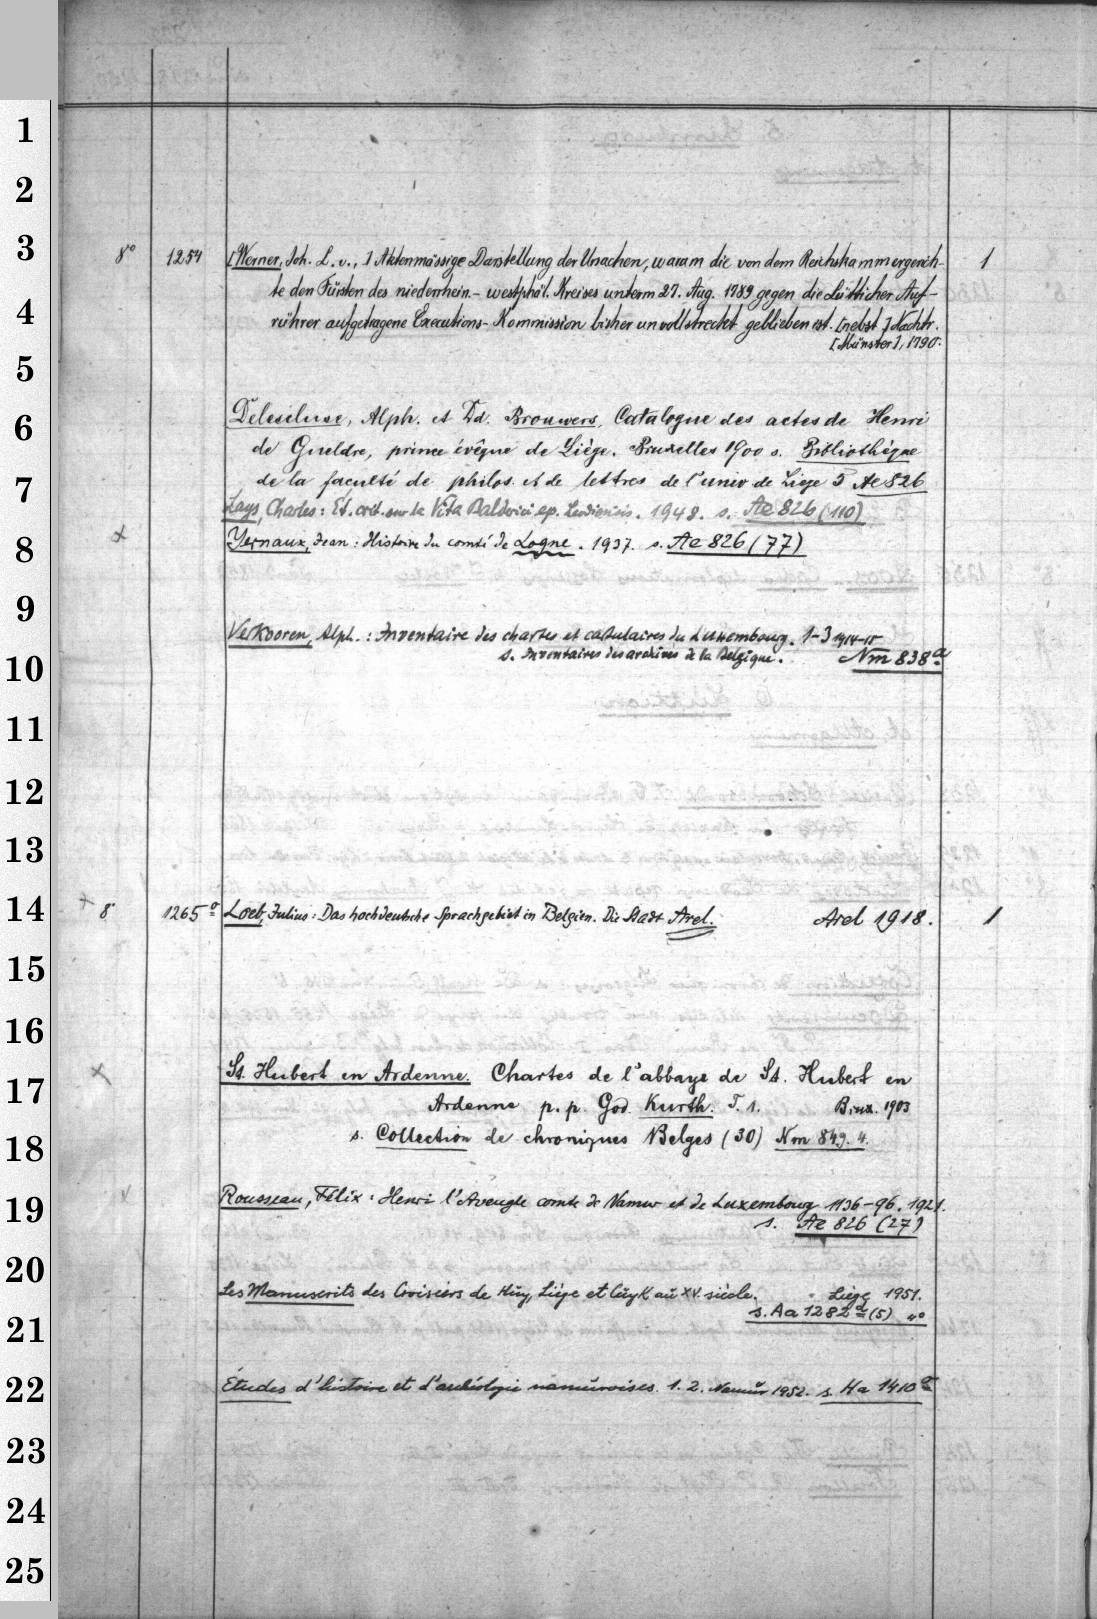 1
2
3
8° 1254 [Werner, Joh. L. v., ] Aktenmässige Darstellung der Ursachen, warum die von dem Reichskammergerich- 1
te den Fürsten des niederrhein.- westphäl. Kreises unterm 27. Aug. 1789 gegen die Lütticher Auf-
4
rührer aufgetragene Executions-Kommission bisher unvollstreckt geblieben ist. [nebst ] Nachtr.
[Münster], 1790.
5
6
Delescluse, Alph. et Dd. Brouwers, Catalogue des actes de Henri
de Gueldre, prince évêque de Liége. Bruxelles 1900 s. Bibliothèque
7
de la faculté de philos. et de lettres de l'univ de Liege 5 Ae 826
Lays, Charles: Et. crit. sur la Vita Balderici ep. Leodiensis. 1948. s. Ae 826 (110)
8
x Yernaux, Jean: Histoire du comté de Logne. 1937. s. Ae 826 (77)
9
Verkooren, Alph.: Inventaire des chartes et cartulaires du Luxembourg. 1-3 1914-15
10
s. Inventaires des archives de la Belgique. Nm 838a
11
12
13
14
+ 8° 1265a Loeb, Julius: Das hochdeutsche Sprachgebiet in Belgien. Die Stadt Arel. Arel 1918. 1
15
16
17
x St. Hubert en Ardenne. Chartes de l'abbaye de St. Hubert en
Ardenne p. p. God. Kurth. T. 1. Brux. 1903
18
s. Collection de chroniques Belges (30) Nm 849. 4.
19
Rousseau, Félix: Henri l'Aveugle comte de Namur et de Luxembourg 1136-96. 1921.
s. Ae 826 (27)
20
Les Manuscrits des Croisiers de Huy, Liége et Cuyk au XV. siècle. Liége 1951.
s. Aa 1282d (5) 4°
21
22
Études d'histoire et d'archéologie namuroises. 1. 2. Namur 1952. s. Ha 1410a
23
24
25